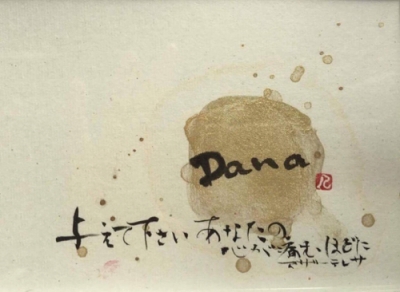 Dana
与えて下さい あなたの
心が痛むほどに
マザーテレサ